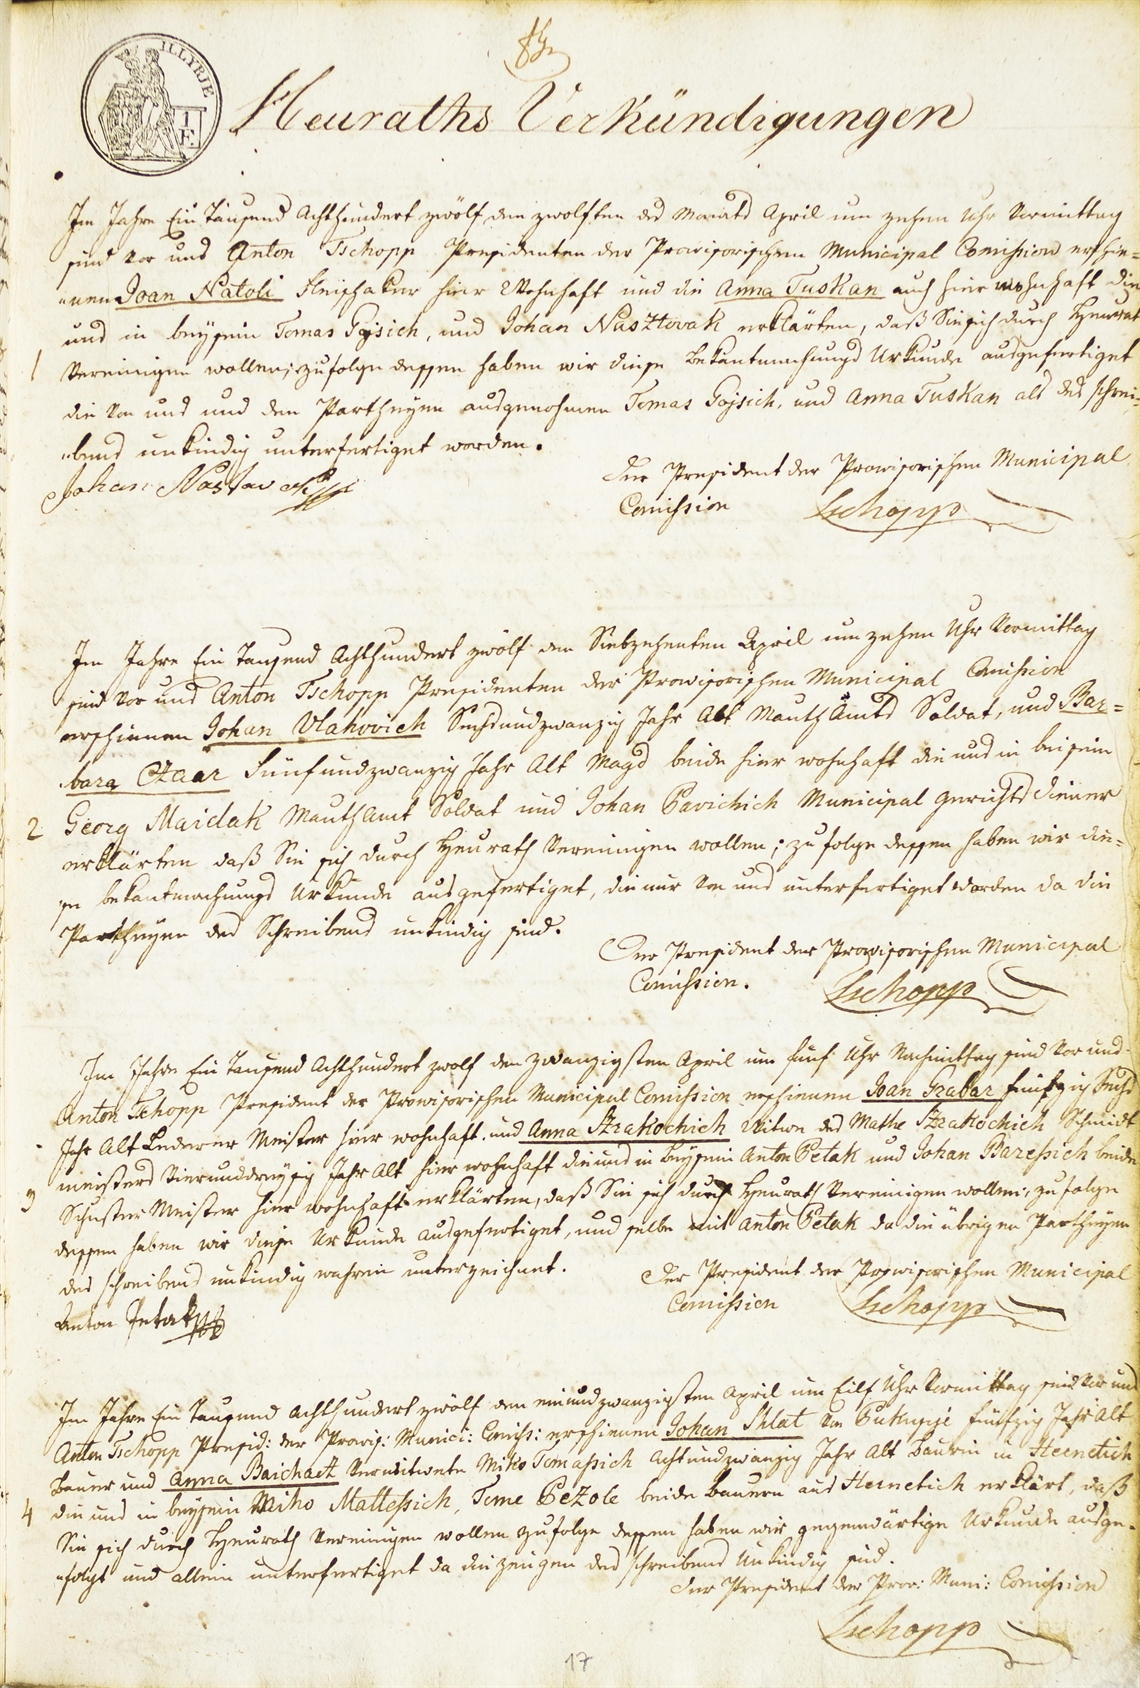 ILLYRIE
1 F.
Heuraths Verkündigungen
Im Jahre Ein Tausend Achthundert zwölf, den zwölften des Monats April um zehen Uhr Vormittag
sind vor uns Anton Tschopp Presidenten der Prowisorischen Municipal Comission erschie=
=nen Joan Natoli Fleischaker hier Wohnhaft und die Anna Tuskan auch hier wohnhaft die
uns in beysein Tomas Gojsich, und Johan Nasztovak erklärten, daß Sie sich durch Heurat
1 Vereinigen wollen; zufolge dessen haben wir diese Bekantmachungs Urkunde ausgefertiget
die von uns und den Partheyen ausgenohmen Tomas Gojsich, und Anna Tuskan als des schrei=
=bens unkindig unterfertiget worden.
Johan Nastavak
Der President der Prowisorischen Municipal
Comission Tschopp
Im Jahre Ein Tausend Achthundert zwölf den Siebzehenten April um zehen Uhr Vormittag
sind vor uns Anton Tschopp Presidenten der Prowisorischen Municipal Comission
erschienen Johan Vlahovich Sechsundzwanzig Jahr Alt Mauth Amts Soldat, und Bar=
bara Czaar Fünfundzwanzig Jahr Alt Magd beide hier wohnhaft die uns in beisein
2 Georg Maidak Mauth Amt Soldat und Johan Pavichich Municipal gerichts diener
erklärten daß Sie sich durch Heurath Vereinigen wollen; zu folge dessen haben wir die=
se bekantmachungs Urkunde ausgefertiget, die nur von uns unterfertiget worden da die
Partheyen des Schreibens unkindig sind.
Der President der Prowisorischen Municipal
Comission. Tschopp
Im Jahre Ein Tausend Achthundert zwölf den zwanzigsten April um fünf Uhr Nachmittag sind vor uns
Anton Tschopp President der Prowisorischen Municipal Comission erschienen Joan Grabar fünfzig Sechs
Jahr Alt Lederer Meister hier wohnhaft und Anna Strakochich Witwe des Mathe Strakochich Schmidt
meisters Vierunddreysig Jahr Alt hier wohnhaft die uns in beysein Anton Petak und Johan Baressich beide
3 Schuster Meister hier wohnhaft erklärten, daß Sie sich durch Heurath Vereinigen wollen; zu folge
dessen haben wir diese Urkunde ausgefertiget, und selbe mit Anton Petak da die übrigen Partheyen
des schreibens unkindig wahren unterzeichnet.
Anton Petak
Der President der Prowisorischen Municipal
Comission Tschopp
Im Jahre Ein Tausend Achthundert zwölf den einundzwanzigsten April um Eilf Uhr Vormittag sind vor uns
Anton Tschopp Presid: der Prowis: Munici: Comiss: erschienen Johan Shlat von Pukupje fünfzig Jahr Alt
Bauer und Anna Baichaet Verwitwete Miko Tomassich Achtundzwanzig Jahr Alt Bäurin in Hernetich
4 die uns in beysein Miho Mattessich, Tome Pezole beide Bauern aus Hernetich erklärt, daß
Sie sich durch Heurath Vereinigen wollen zufolge dessen haben wir gegenwärtige Urkunde ausge=
=folgt und allein unterfertiget da die zeugen des schreibens Unkindig sind.
Der President der Prov: Muni: Comission
Tschopp
17